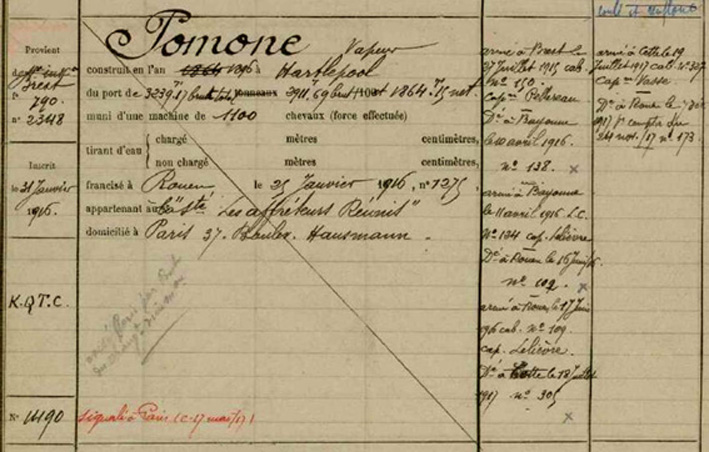 Provient
Brest
f° 790.
n° 2348
Inscrit
le 31 Janvier
1916.
K.Q.T.C.
N° 1490
Pomone Vapeur
construit en l'an 1864 1896 à Hartlepool
du port de 3239.17 brut tonneaux 2911.69 brut 1864.75 net
muni d'une machine de 1100 chevaux (force effectuée)
tirant d'eau { chargé mètres centimètres,
non chargé mètres centimètres,
francisé à Rouen le 25 Janvier 1916, n° 1275
appartenant à "Sté Les affréteurs Réunis"
domicilié à Paris 37. Boulev. Hausmann.
signalé à Paris (C. 17 mars/17)
armé à Brest le
27 Juillet 1915 cab.
N° 150
Cap° Pellereau
Dé à Bayonne
le 10 avril 1916.
N° 138. x
armé à Bayonne
le 11 avril 1916 L.C.
N° 124 cap. Lelièvre
Dé à Rouen le 16 Juin/16
N° 109. x
armé à Rouen le 17 Juin
1916 cab. N° 109.
cap. Lelièvre.
Dé à Cette le 18 Juillet
1917 N° 305
x
armé à Cette le 19
Juillet 1917 cab. N° 327
Cap° Vasse.
Dé à Rouen le
1917 f° compter du
24 nov./17 n° 173